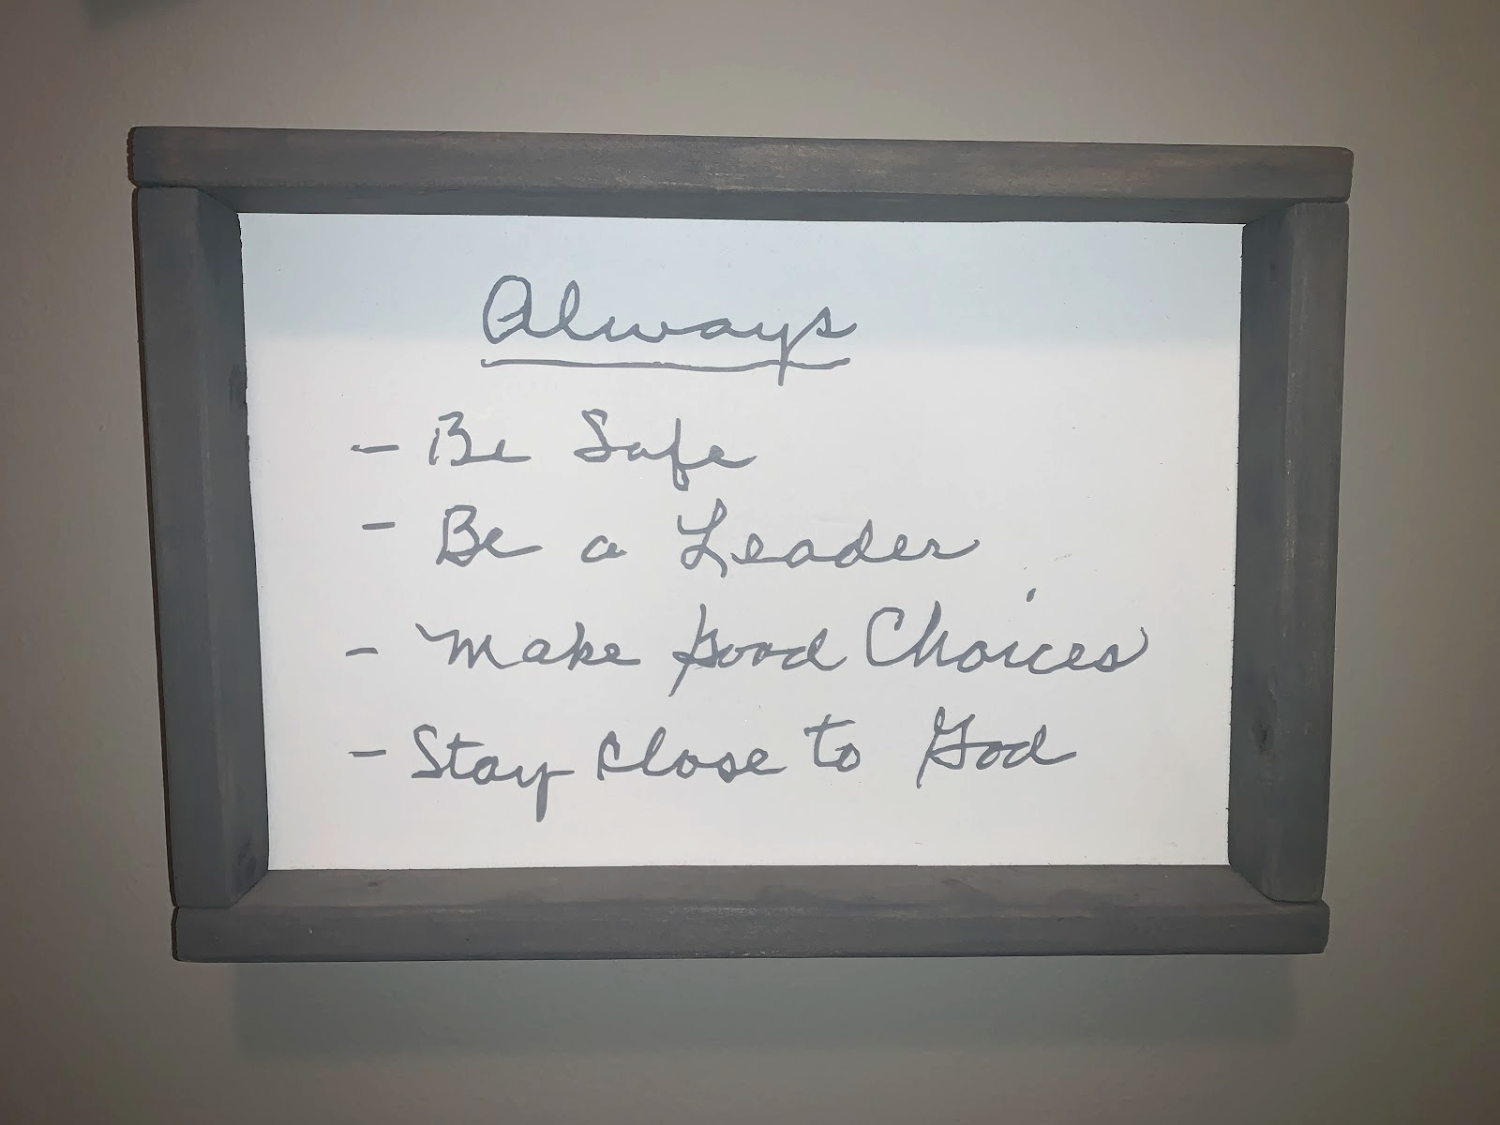 Always
- Be Safe
- Be a Leader
- Make good Choices
- Stay Close to God